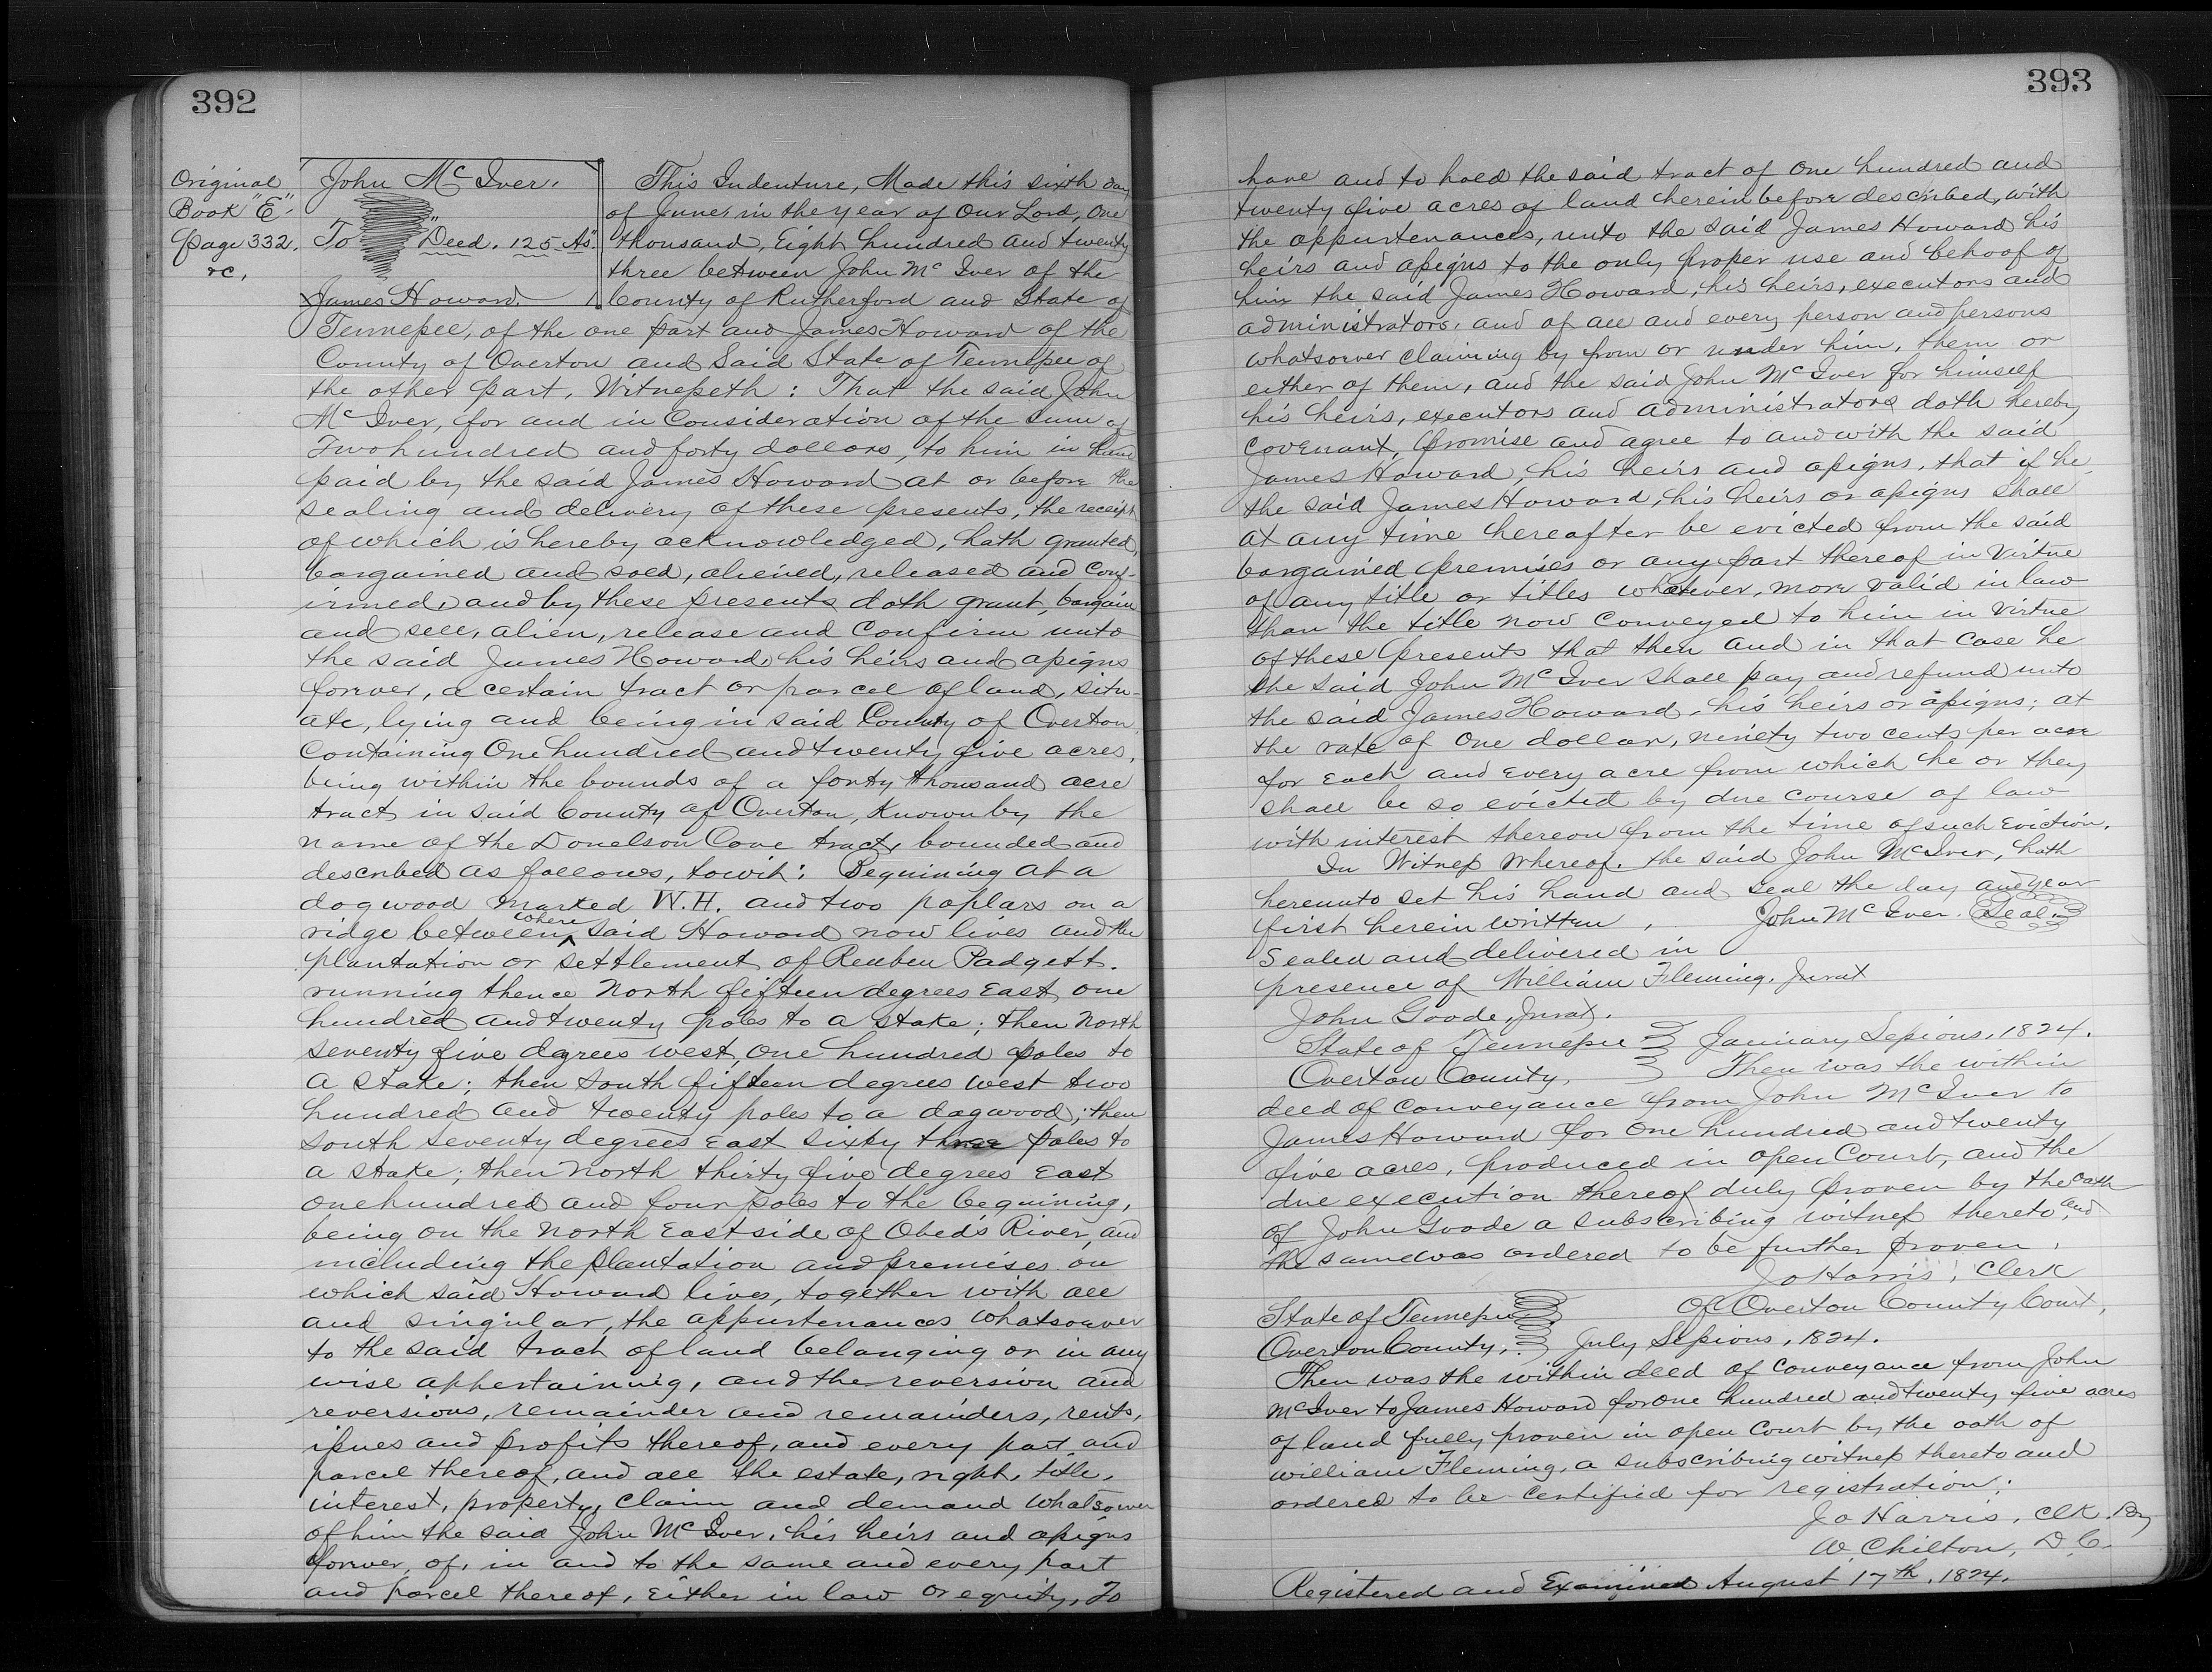 392
Original
Book "E",
page 332.
&c,
John McIver.
To Deed. 125 As".
James Howard.
This Indenture, Made this sixth day
of June, in the year of Our Lord, One
thousand, Eight hundred and twenty
three between John McIver of the
County of Rutherford and State of
Tennessee, of the one part and James Howard of the
County of Overton and Said State of Tennessee of
the other part, Witnesseth: That the said John
McIver, for and in Consideration of the sum of
Two hundred and forty dollars, to him in hand
paid by the said James Howard at or before the
sealing and delivery of these presents, the receipt
of which is hereby acknowledged, hath granted,
bargained and sold, aliened, released and conf-
irmed, and by these presents doth grant, bargain
and sell, alien, release and confirm unto
the said James Howard, his heirs and assigns
forever, a certain tract or parcel of land, situ-
ate, lying and being in said County of Overton,
Containing One hundred and twenty five acres,
being within the bounds of a forty thousand acre
tract in said County of Overton, Known by the
name of the Donelson Cove tract, bounded and
described as follows, towit: Beginning at a
dogwood marked W.H. and two poplars on a
ridge between where said Howard now lives and the
plantation or settlement of Reuben Padgett.
running thence North fifteen degrees East one
hundred and twenty poles to a stake; then North
seventy five degrees west, one hundred poles to
a stake; then South fifteen degrees west two
hundred and twenty poles to a dogwood; then
South seventy degrees East sixty three poles to
a stake; then North thirty five degrees East
one hundred and four poles to the beginning,
being on the North East side of Obed's River, and
including the plantation and premises on
which said Howard lives, together with all
and singular, the appurtenances whatsoever
to the said tract of land belonging or in any
wise appertaining, and the reversion and
reversions, remainder and remainders, rents,
issues and profits thereof, and every part and
parcel thereof, and all the estate, right, title,
interest, property, claim and demand whatsoever
of him the said John McIver, his heirs and assigns
forever, of, in and to the same and every part
and parcel thereof, either in law or equity, To
393
have and to hold the said tract of One hundred and
twenty five acres of land herein before described, with
the appurtenances, unto the said James Howard his
heirs and assigns to the only proper use and behoof of
him the said James Howard, his heirs, executors and
administrators, and of all and every person and persons
whatsoever claiming by from or under him, them or
either of them, and the said John McIver for himself
his heirs, executors and administrators doth hereby
covenant, promise and agree to and with the said
James Howard, his heirs and assigns, that if he
the said James Howard, his heirs or assigns shall
at any time hereafter be evicted from the said
bargained premises or any part thereof in virtue
of any title or titles whatever, more valid in law
than the title now conveyed to him in virtue
of these presents that then and in that case he
the said John McIver shall pay and refund unto
the said James Howard, his heirs or assigns; at
the rate of One dollar, ninety two cents per acre
for each and every acre from which he or they
shall be so evicted by due course of law
with interest thereon from the time of such Eviction.
In Witness Whereof, the said John McIver, hath
hereunto set his hand and seal the day and year
first herein written, John McIver. Seal
Sealed and delivered in
presence of William Fleming. Jurat
John Goode, Jurat.
State of Tennessee January Sessions, 1824.
Overton County, Then was the within
deed of conveyance from John McIver to
James Howard for One hundred and twenty
five acres, produced in open Court, and the
due execution thereof duly proven by the oath
of John Goode a subscribing witness thereto, and
the same was ordered to be further proven.
Jo Harris, Clerk
Of Overton County Court,
State of Tennessee
Overton County, July Sessions, 1824.
Then was the within deed of conveyance from John
McIver to James Howard for one hundred and twenty five acres
of land fully proven in open Court by the oath of
William Fleming, a subscribing witness thereto and
ordered to be certified for registration;
Jo Harris, Clk. By
W. Chilton, D.C.
Registered and Examined August 17th, 1824.